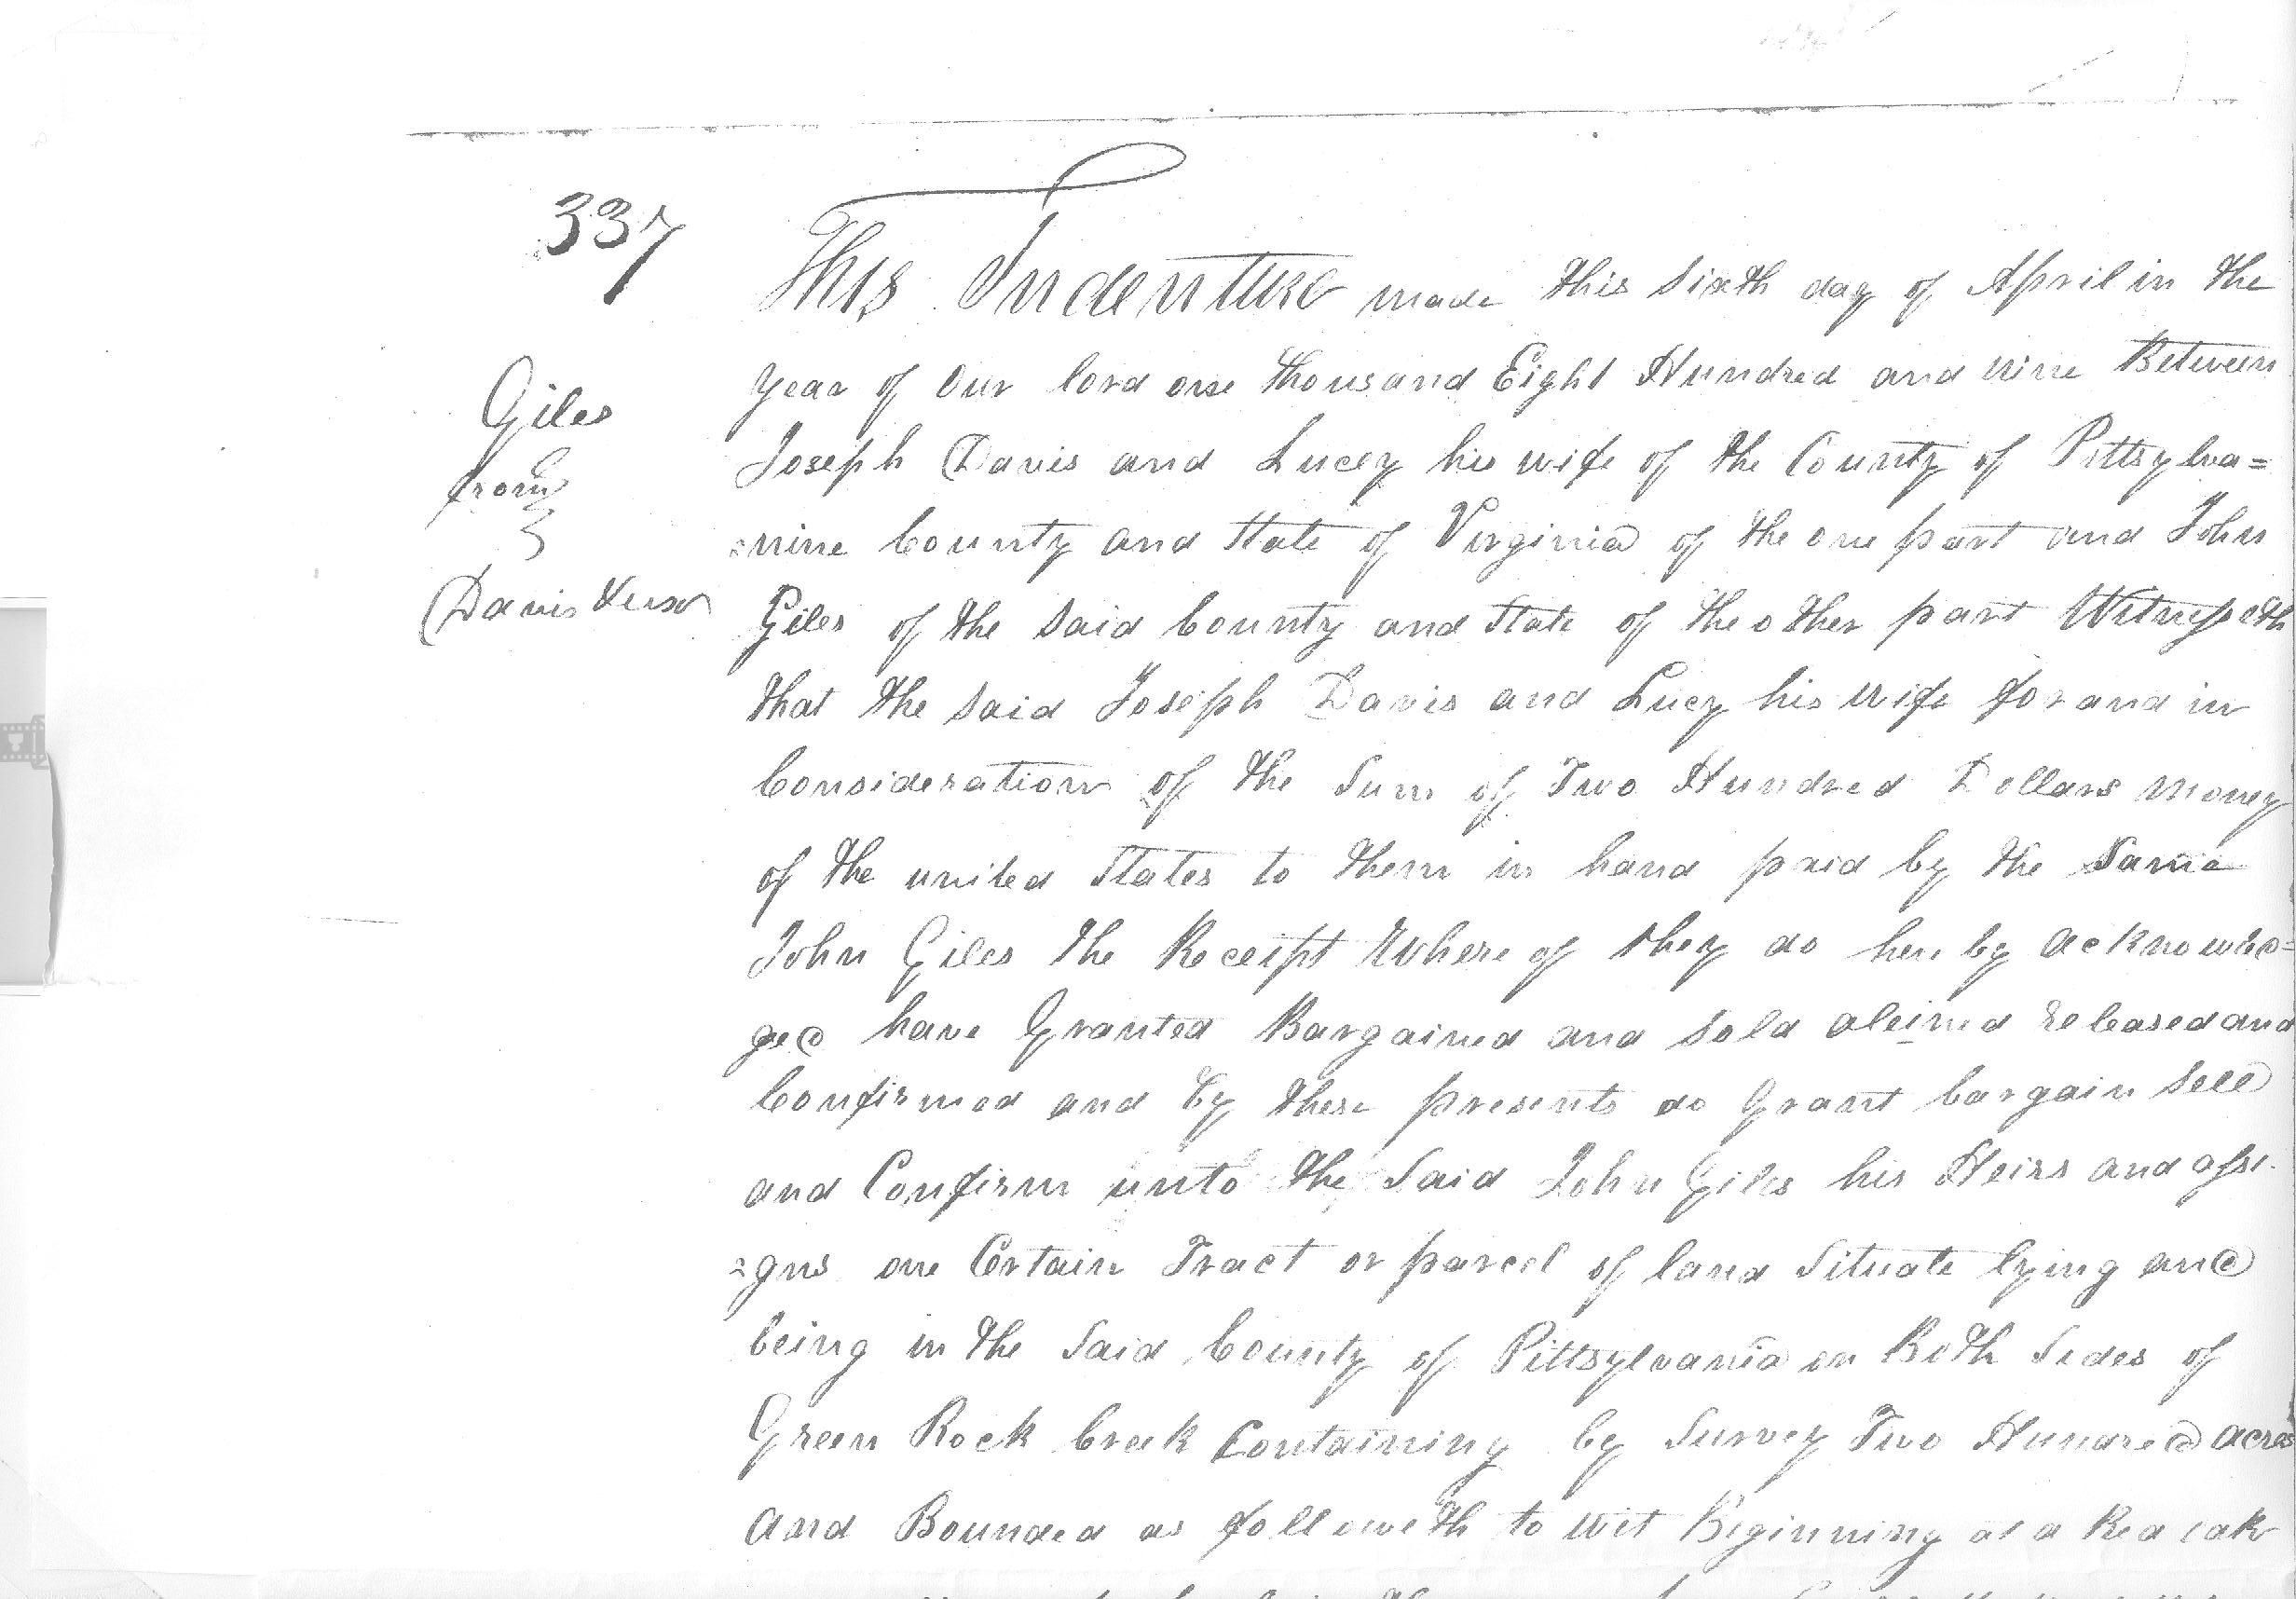 337
This Indenture made this Sixth day of April in the
year of our lord one thousand Eight Hundred and nine Between
Giles
Joseph Davis and Lucey his wife of the County of Pittsylva=
from
=nine County and State of Virginia of the one part and John
Davis &
Giles of the Said County and State of the other part Witnesseth
that the Said Joseph Davis and Lucy his wife for and in
Consideration of the Sum of Two Hundred Dollars money
of the united States to them in hand paid by the Same
John Giles the Receipt Where of they do here by acknowled=
ged have Granted Bargained and Sold aleined released and
Confirmed and by these presents do Grant bargain Sell
and Confirm unto the Said John Giles his Heirs and assi
=gns one Certain Tract or parcel of land Situate lying and
being in the Said County of Pittsylvania on Both Sides of
Green Rock Creek Containing by Survey Two Hundred acres
and Bounded as followeth to wit Beginning at a Red oak